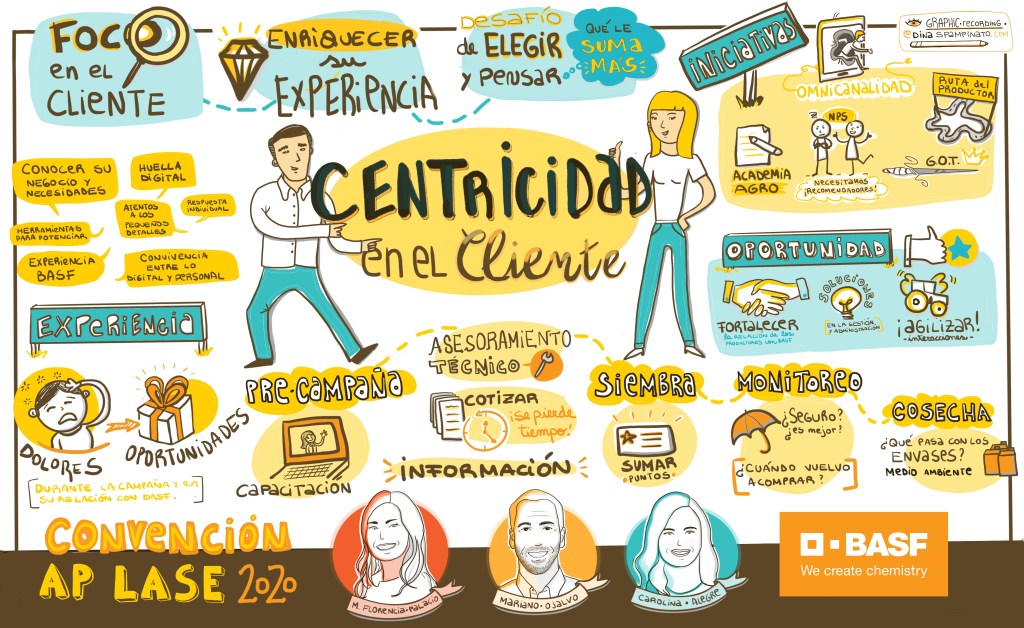 FOCO
en el
CLIENTE
ENRIQUECER
su
EXPERIENCIA
DESAFÍO
de ELEGIR
y PENSAR
QUÉ LE
SUMA
MAS
INICIATIVAS
GRAPHIC·RECORDING·
@DINASPAMPINATO.COM
OMNICANALIDAD
RUTA del
PRODUCTOR
ACADEMIA
AGRO
NPS
¡NECESITAMOS
RECOMENDADORES!
G.O.T.
CONOCER SU
NEGOCIO Y
NECESIDADES
HUELLA
DIGITAL
ATENTOS
A LOS
PEQUEÑOS
DETALLES
RESPUESTA
INDIVIDUAL
HERRAMIENTAS
PARA POTENCIAR
EXPERIENCIA
BASF
CONVIVENCIA
ENTRE LO
DIGITAL Y PERSONAL
CENTRICIDAD
EN EL Cliente
OPORTUNIDAD
FORTALECER
LA RELACIÓN DE LOS
PRODUCTORES CON BASF
SOLUCIONES
EN LA GESTIÓN
Y ADMINISTRACIÓN
¡AGILIZAR!
-interacciones-
EXPERIENCIA
DOLORES
OPORTUNIDADES
DURANTE LA CAMPAÑA Y EN
SU RELACIÓN CON BASF.
PRE-CAMPAÑA
CAPACITACIÓN
ASESORAMIENTO
TÉCNICO
COTIZAR
¡se pierde
tiempo!
INFORMACIÓN
SIEMBRA
SUMAR
PUNTOS
MONITOREO
¿SEGURO?
¿es mejor?
¿CUÁNDO VUELVO
A COMPRAR?
COSECHA
¿QUÉ PASA CON LOS
ENVASES?
MEDIO AMBIENTE
CONVENCIÓN
AP LASE 2020
M. FLORENCIA·PALACIO
MARIANO·OJALVO
CAROLINA·ALEGRE
BASF
We create chemistry